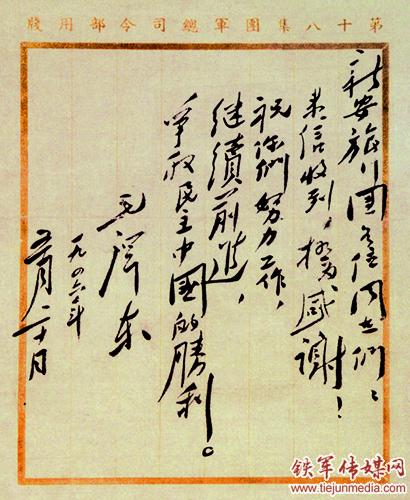 第十八集團軍總司令部用牋
新安旅行團各位同志們：
來信收到，極為感謝！
祝你們努力工作，
繼續前進，
爭取民主中國的勝利。
毛澤東
一九四六年
五月二十日
铁军传媒网
www.tiejunmedia.com